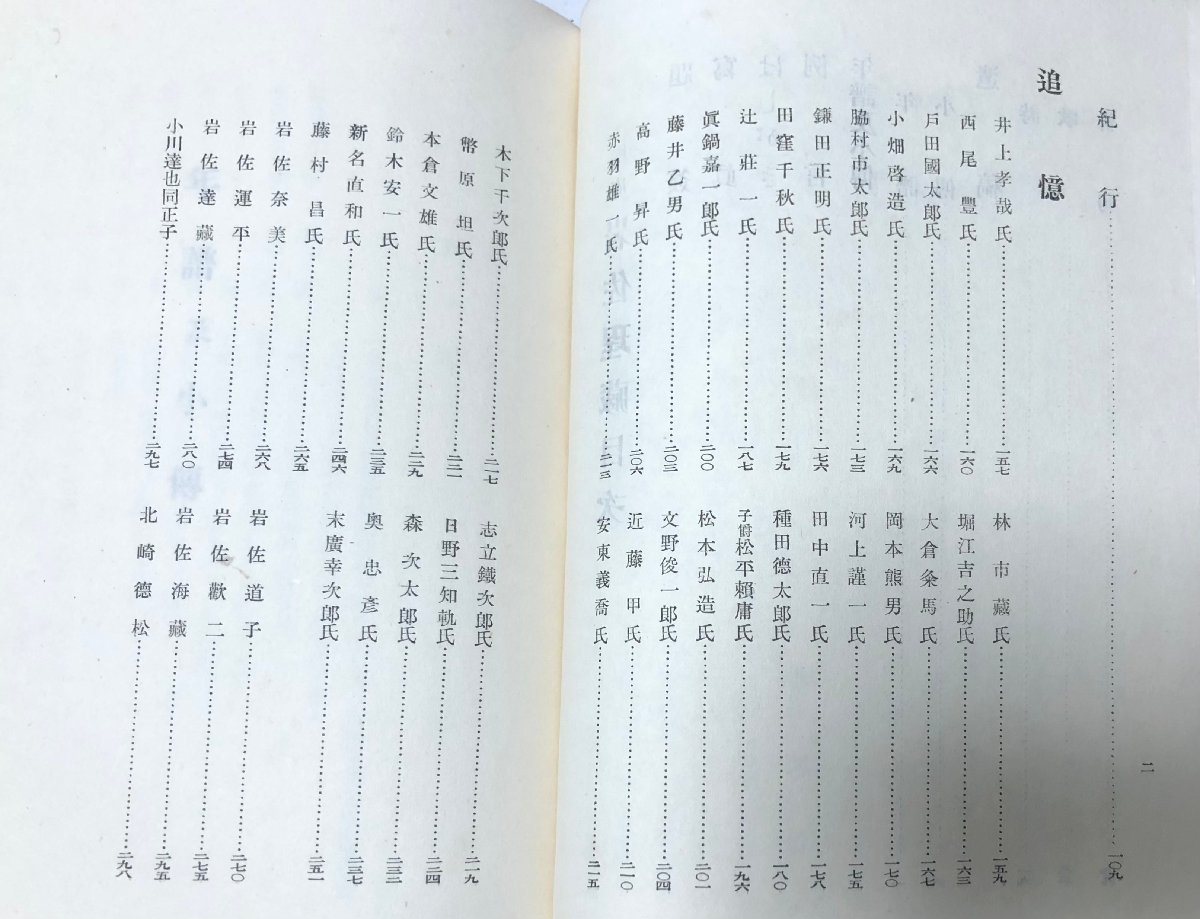 紀行……一〇九
追憶
井上孝哉氏……一五七
林市藏氏……一五九
西尾豐氏……一六〇
堀江吉之助氏……一六三
戸田國太郎氏……一六六
大倉粂馬氏……一六七
小畑啓造氏……一六九
岡本熊男氏……一七〇
脇村市太郎氏……一七三
河上謹一氏……一七五
鎌田正明氏……一七六
田中直一氏……一七八
田窪千秋氏……一七九
種田德太郎氏……一八〇
辻莊一氏……一八七
子爵松平賴庸氏……一九六
眞鍋嘉一郎氏……二〇〇
松本弘造氏……二〇一
藤井乙男氏……二〇三
文野俊一郎氏……二〇四
高野昇氏……二〇六
近藤甲氏……二一〇
赤羽雄一氏……二一三
安東義喬氏……二一五
二
木下千次郎氏……二一七
志立鐵次郎氏……二一九
幣原坦氏……二二一
日野三知軌氏……二二四
本倉文雄氏……二二九
森次太郎氏……二三二
鈴木安一氏……二三五
奥忠彥氏……二三七
新名直和氏……二四六
末廣幸次郎氏……二五一
藤村昌氏……二六五
岩佐奈美……二六八
岩佐道子……二七〇
岩佐運平……二七四
岩佐歡二……二七五
岩佐達藏……二八〇
岩佐海藏……二九五
小川達也同正子……二九七
北崎德松……二九八